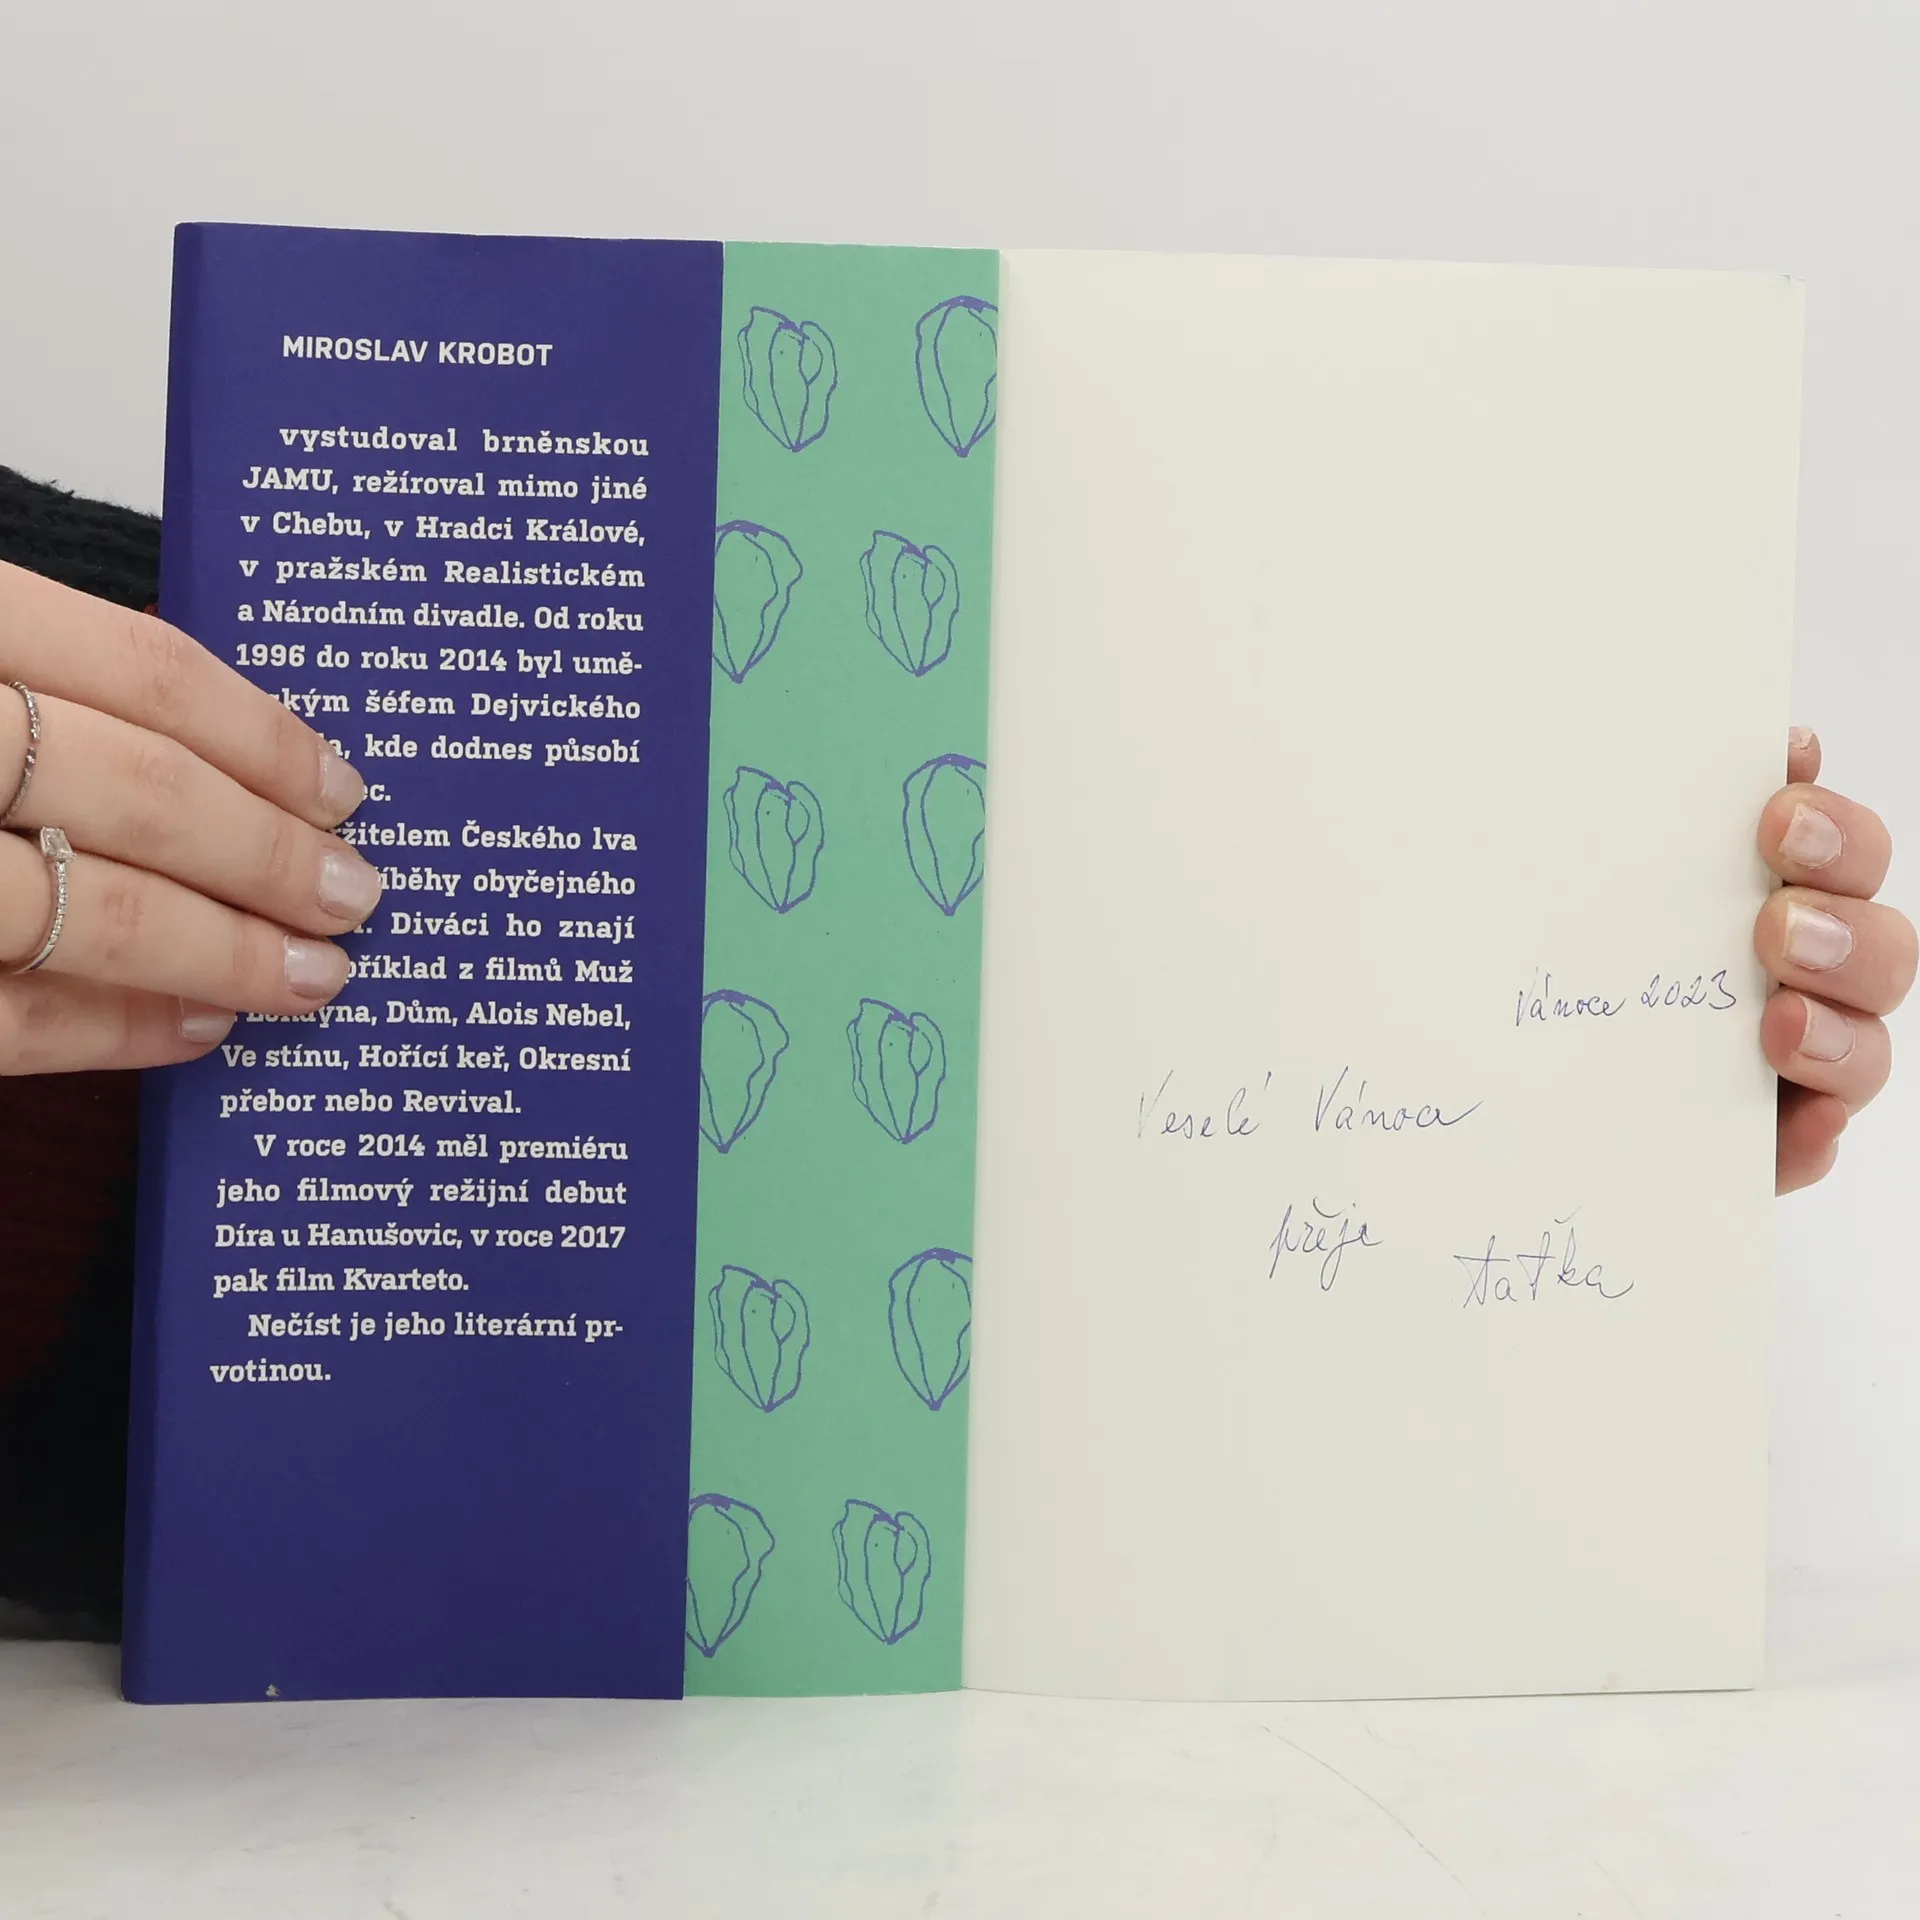 MIROSLAV KROBOT
vystudoval brněnskou
JAMU, režíroval mimo jiné
v Chebu, v Hradci Králové,
v pražském Realistickém
a Národním divadle. Od roku
1996 do roku 2014 byl umě-
šéfem Dejvického
kde dodnes působí
Českého lva
obyčejného
Diváci ho znají
z filmů Muž
Dům, Alois Nebel,
Ve stínu, Hořící keř, Okresní
přebor nebo Revival.
V roce 2014 měl premiéru
jeho filmový režijní debut
Díra u Hanušovic, v roce 2017
pak film Kvarteto.
Nečíst je jeho literární pr-
votinou.
Vánoce 2023
Veselé Vánoce
přeje
taťka